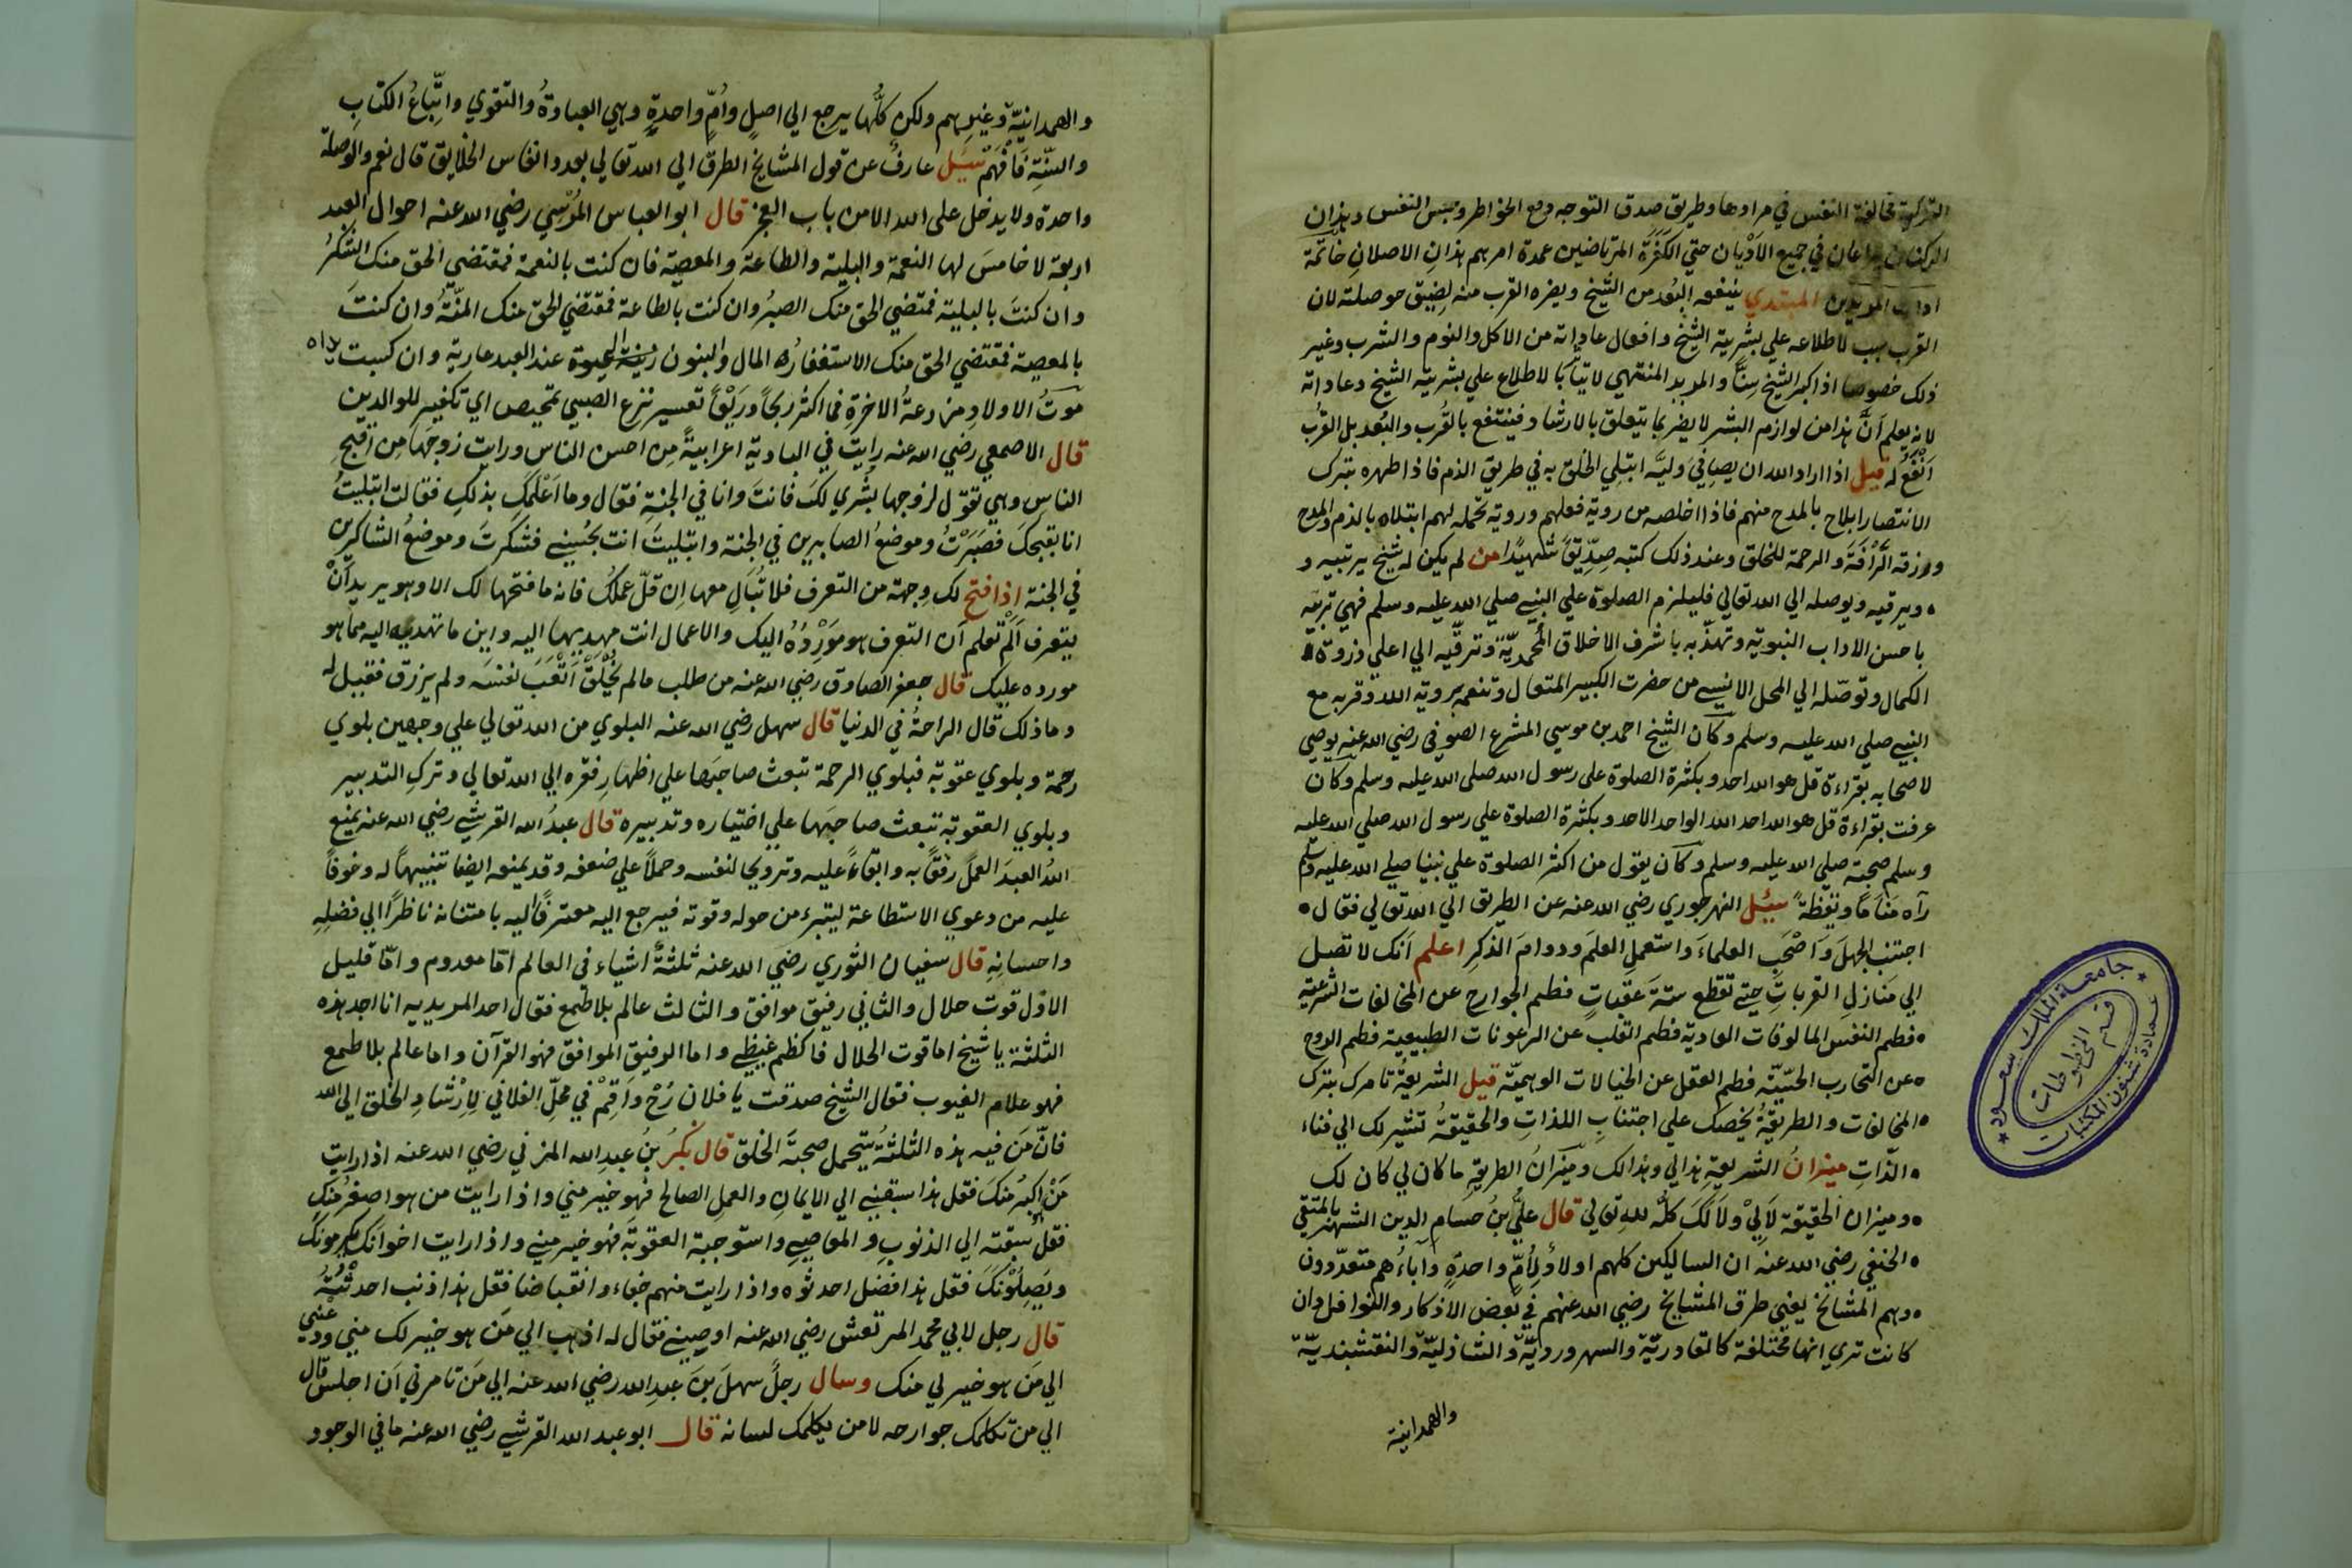 التزكية مخالفة النفس في مرادها وطريق صدق التوجه دفع الخواطر وحبس النفس وهذان
الركنان في جميع الاديان حتي الكفرة المرتاضين عمدة امرهم هذان الاصلان خاتمة
اداب المريدين المبتدي ينفعه البعد من الشيخ ويضره القرب منه لضيق حوصلته لان
القرب سبب لاطلاعه علي بشرية الشيخ وافعال عاداته من الاكل والنوم والشرب وغير
ذلك خصوصا اذا كبر الشيخ سنا والمريد المنتهي لا بالاطلاع علي بشرية الشيخ وعاداته
لانه يعلم انّ هذا من لوازم البشر لا يضر بما يتعلق بالارشاد فينتفع بالقرب والبعد بل القرب
اَنْفَعُ له قيل اذا اراد الله ان يصافي وليّه ابتلي الخلق به في طريق الذم فاذا طهره بترك
الانتصار بالمدح منهم فاذا اخلصه من روية فعلهم وروية تحمله لهم ابتلاه بالذم والمدح
ورزقه الرأفة والرحمة للخلق وعند ذلك كتبه صدّيقا شهيدا من لم يكن له شيخ يربيه و
ويرقيه ويوصله الي الله تعالي فليلزم الصلوة علي النبي صلي الله عليه وسلم فهي تربيه
باحسن الاداب النبوية وتهذّبه باشرف الاخلاق المحمديّة وترقّيه الي اعلي ذروة
الكمال وتوصّله الي المحل الانسي من حضرت الكبير المتعال وتنعمه بروية الله وقربه مع
النبي صلي الله عليه وسلم وكان الشيخ احمد بن موسي المشرع الصوفي رضي الله عنه يوصي
لاصحابه بقراءة قل هو الله احد وبكثرة الصلوة علي رسول الله صلي الله عليه وسلم وكان
عرفت بقراءة قل هو الله احد الله الواحد الاحد وبكثرة الصلوة علي رسول الله صلي الله عليه
وسلم صحبته صلي الله عليه وسلم وكان يقول من اكثر الصلوة علي نبينا صلي الله عليه وسلم
رآه مناما ويقظة سئل النهرجوري رضي الله عنه عن الطريق الي الله تعالي فقال
اجتنب الجهل واصحب العلماء واستعمل العلم ودوام الذكر اعلم انك لا تصل
الي منازل القربات حتي تقطع ستة عقبات فطم الجوارح عن المخالفات الشرعية
فطم النفس المالوفات العادية فطم القلب عن الرعونات الطبيعية فطم الروح
عن التجارب الحسّيّة فطم العقل عن الخيالات الوهميّة قيل الشريعة تامرك بترك
المخالفات والطريقة يحضك علي اجتناب اللذات والحقيقة تشير لك الي فناء
الذّات ميزان الشريعة هذا لي وهذا لك وميزان الطريقة ما كان لي كان لك
وميزان الحقيقة لا لي ولا لك كلّه لله تعالي قال عليّ بن حسام الدين الشهير بالمتقي
الحنفي رضي الله عنه ان السالكين كلهم اولاد لامّ واحدة واباءهم متعدّدون
وهم المشائخ يعني طرق المشايخ رضي الله عنهم في بعض الاذكار والنوافل وان
كانت تري انها مختلفة كالقادريّة والسهرورديّة والشاذليّة والنقشبنديّة
والهمدانية
جامعة الملك سعود
قسم المخطوطات
عمادة شئون المكتبات
والهمدانيّة وغيرهم ولكن كلّها يرجع الي اصل وامّ واحدة وهي العبادة والتقوي واتّباع الكتاب
والسّنّة فافهم سئل عارف عن قول المشايخ الطرق الي الله تعالي بعدد انفاس الخلايق قال نعم والوصلة
واحدة ولا يدخل علي الله الا من باب العجز قال ابو العباس المرسي رضي الله عنه احوال العبد
اربعة لا خامس لها النعمة والبلية والطاعة والمعصية فان كنت بالنعمة فمقتضي الحق منك الشكر
وان كنت بالبلية فمقتضي الحق منك الصبر وان كنت بالطاعة فمقتضي الحق منك المنّة وان كنت
بالمعصية فمقتضي الحق منك الاستغفار المال والبنون زينة الحيوة عند العبد عارية وان كسبت يداه
موت الاولاد مزدعة الاخرة فما اكثر ربحا وريقا تعسير نزع الصبي تمحيص اي تكفير للوالدين
قال الاصمعي رضي الله عنه رايت في البادية اعرابية من احسن الناس ورايت زوجها من اقبح
الناس وهي تقول لزوجها بشري لك فانت وانا في الجنة فقال وما اعلمك بذلك فقالت ابتليت
انا بقبحك فصبرت وموضع الصابرين في الجنة وابتليت انت بحسني فشكرت وموضع الشاكرين
في الجنة اذا فتح لك وجهة من التعرف فلا تبال معها ان قلّ عملك فانه ما فتحها لك الا وهو يريد ان
يتعرف الم تعلم ان التعرف هو مورده اليك والاعمال انت مهديها اليه واين ما تهديه اليه مما هو
مورده عليك قال جعفر الصادق رضي الله عنه من طلب ما لم يخلق اتعب نفسه ولم يرزق فقيل له
وما ذلك قال الراحة في الدنيا قال سهل رضي الله عنه البلوي من الله تعالي علي وجهين بلوي
رحمة وبلوي عقوبة فبلوي الرحمة تبعث صاحبها علي اظهار فقره الي الله تعالي وترك التدبير
وبلوي العقوبة تبعث صاحبها علي اختياره وتدبيره قال عبد الله القرشي رضي الله عنه يمنع
الله العبد العمل رفقا به وابقاء عليه وترويحا لنفسه وحملا علي ضعفه وقد يمنعه ايضا تنبيها له وخوفا
عليه من دعوي الاستطاعة ليتبرء من حوله وقوته فيرجع اليه معترفا اليه بامتنانه ناظرا الي فضله
واحسانه قال سفيان الثوري رضي الله عنه ثلثة اشياء في العالم امّا معدوم وامّا قليل
الاول قوت حلال والثاني رفيق موافق والثالث عالم بلا طمع فقال احد المريديه انا اجد هذه
الثلثة يا شيخ اما قوت الحلال فاكظم غيظي واما الرفيق الموافق فهو القرآن واما عالم بلا طمع
فهو علام الغيوب فقال الشيخ صدقت يا فلان رح واقم في محلّ الفلاني لارشاد الخلق الي الله
فانّ من فيه هذه الثلثة يتحمل صحبة الخلق قال بكر بن عبد الله المزني رضي الله عنه اذا رايت
من اكبر منك فقل هذا سبقني الي الايمان والعمل الصالح فهو خير مني واذا رايت من هو اصغر منك
فقل سبقته الي الذنوب والمعاصي واستوجبة العقوبة فهو خير مني واذا رايت اخوانك يكرمونك
ويصلونك فقل هذا فضل احدثوه واذا رايت منهم جفاء وانقباضا فقل هذا ذنب احدثته
قال رجل لابي محمد المرتعش رضي الله عنه اوصيني فقال له اذهب الي من هو خير لك مني ودعني
الي من هو خير لي منك وسال رجل سهل بن عبد الله رضي الله عنه الي من تامرني ان اجلس قال
الي من تكلمك جوارحه لا من يكلمك لسانه قال ابو عبد الله القرشي رضي الله عنه ما في الوجود